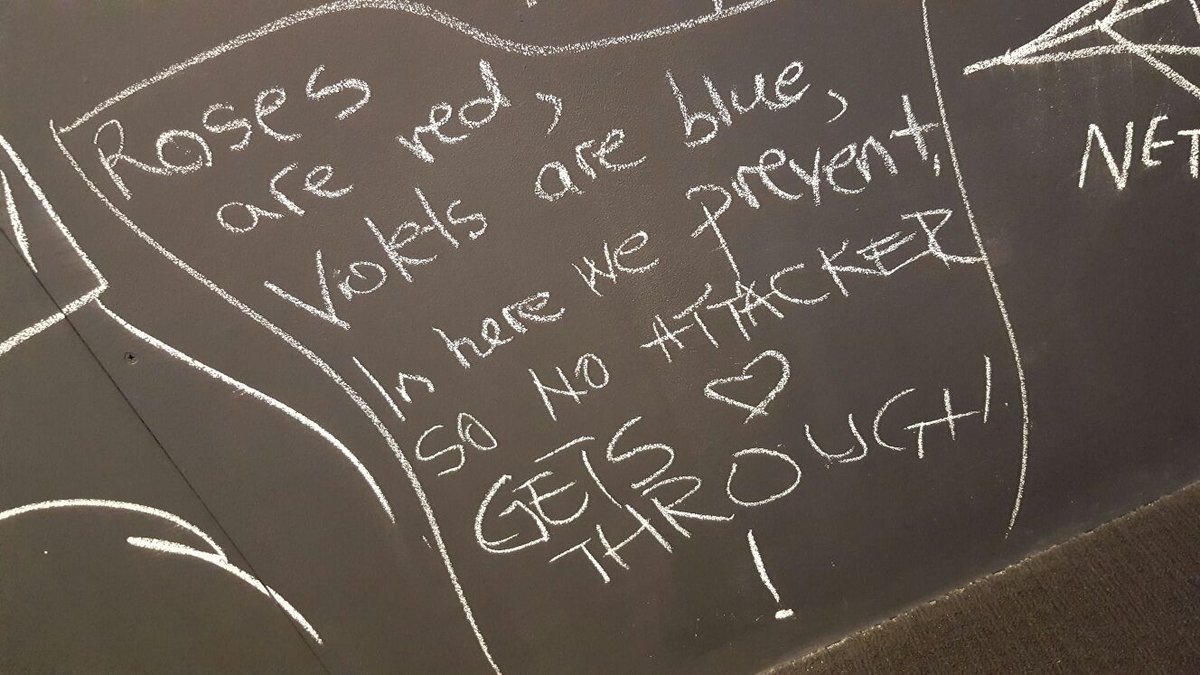 Roses
are red,
Violets are blue,
In here we prevent,
SO NO ATTACKER
GETS
THROUGH
!
NET